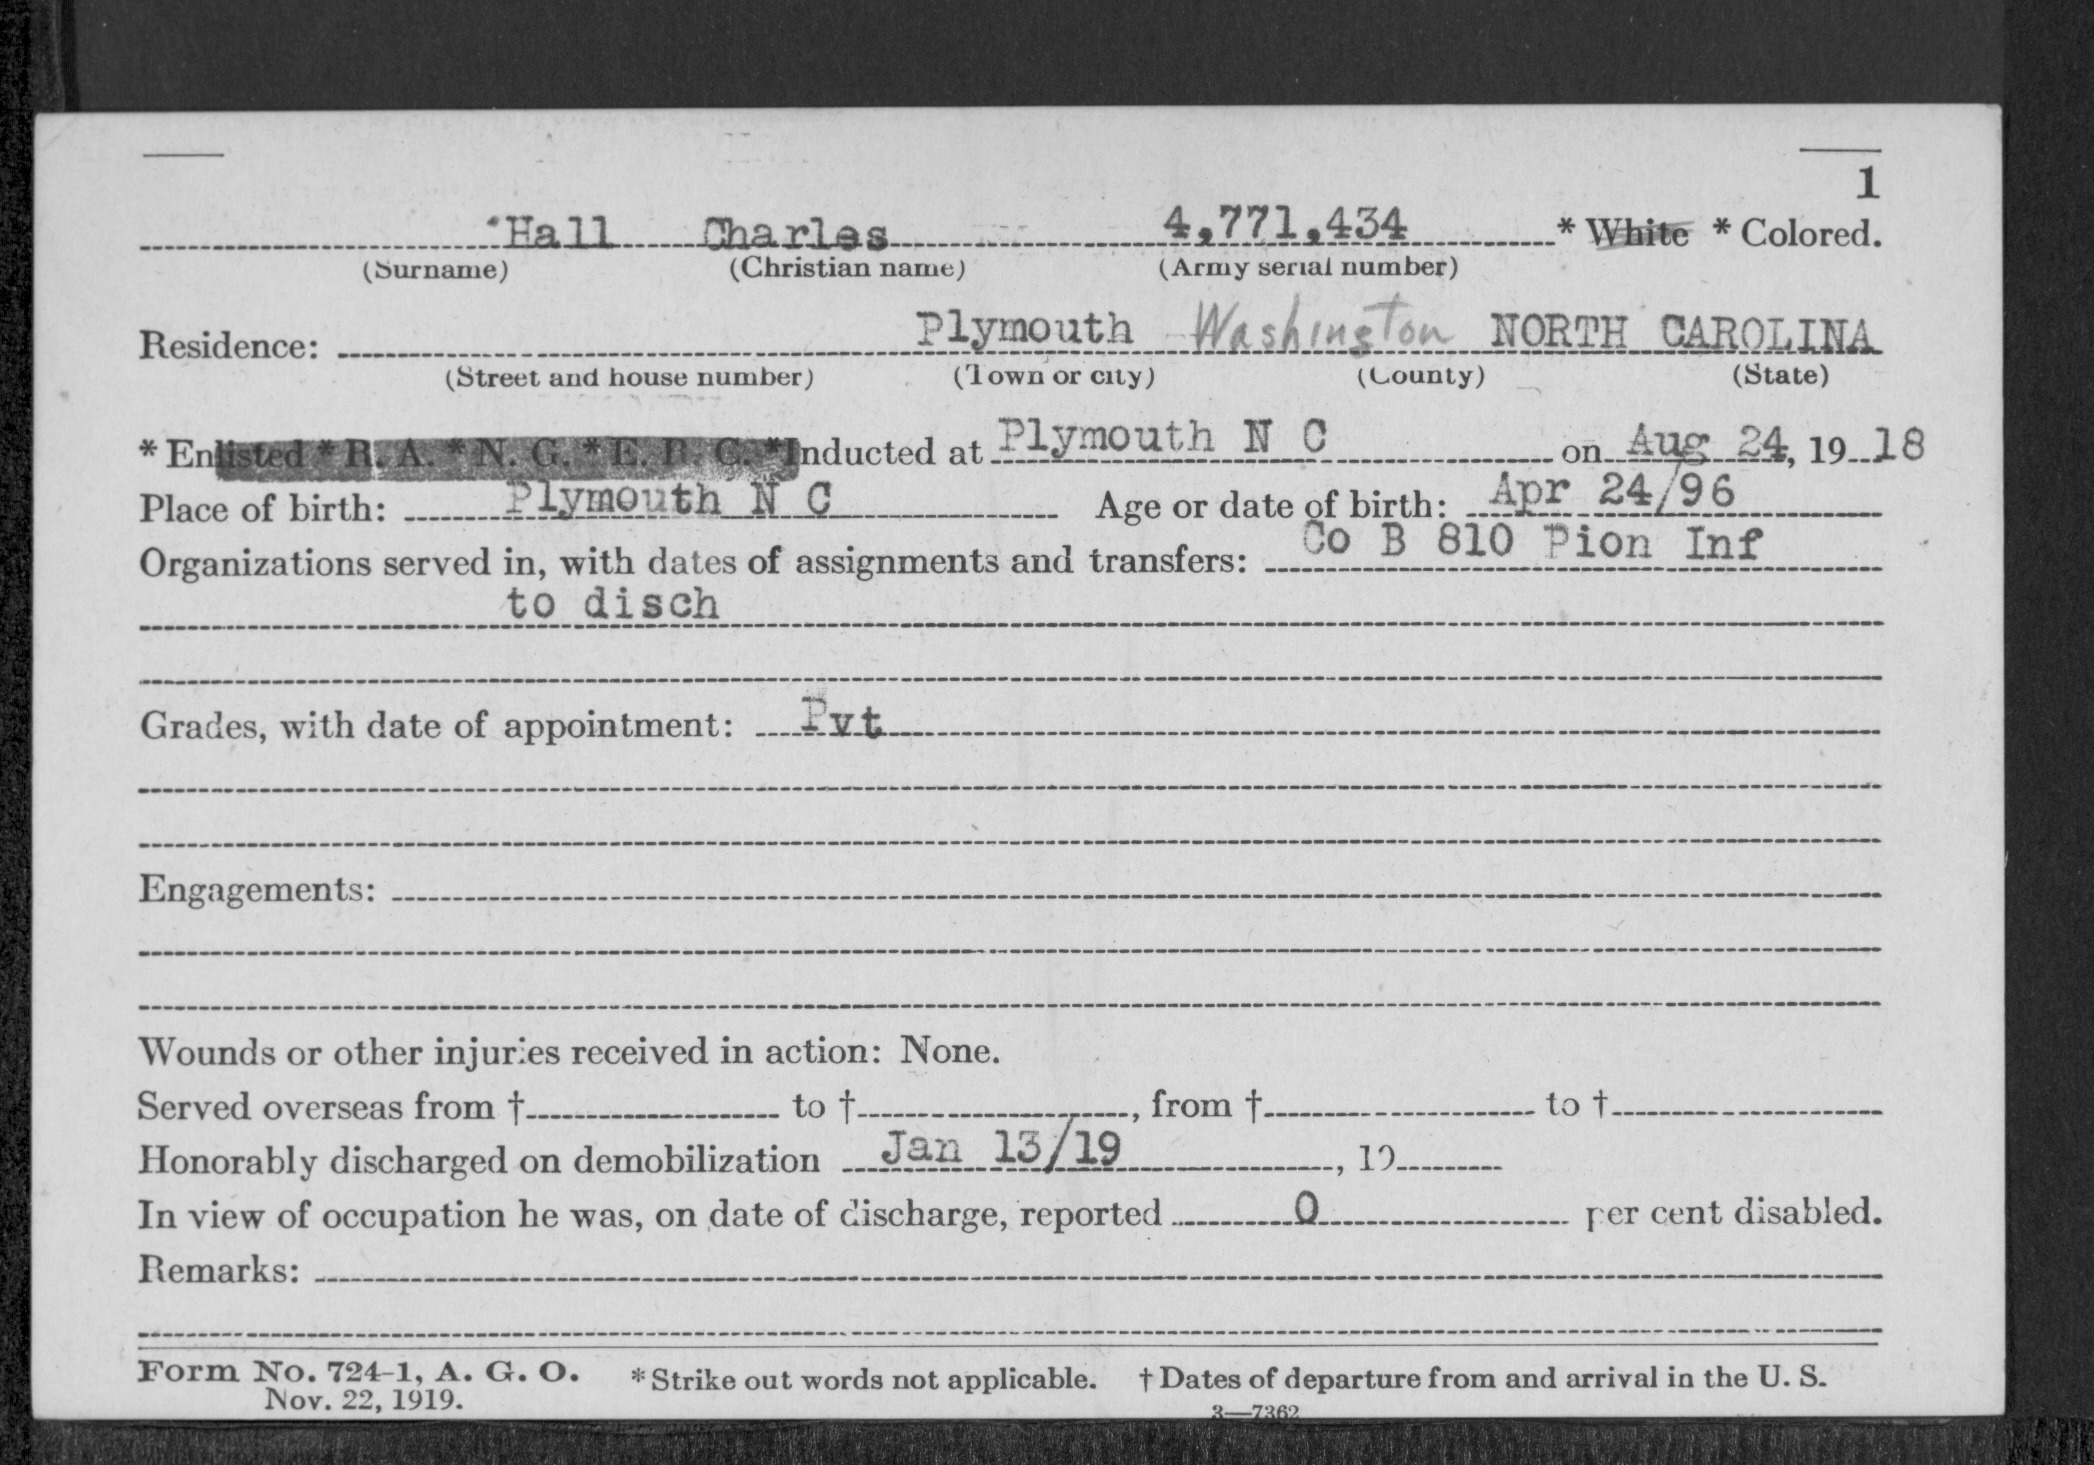 1
Hall Charles 4,771,434 * White * Colored.
(Surname) (Christian name) (Army serial number)
Residence: Plymouth Washington NORTH CAROLINA
(Street and house number) (Town or city) (County) (State)
* Enlisted * R. A. * N. G. * E. R. C. * Inducted at Plymouth N C on Aug 24, 19 18
Place of birth: Plymouth N C Age or date of birth: Apr 24/96
Organizations served in, with dates of assignments and transfers: Co B 810 Pion Inf
to disch
Grades, with date of appointment: Pvt
Engagements:
Wounds or other injuries received in action: None.
Served overseas from † to †, from † to †
Honorably discharged on demobilization Jan 13/19, 19
In view of occupation he was, on date of discharge, reported 0 per cent disabled.
Remarks:
Form No. 724-1, A. G. O. * Strike out words not applicable. † Dates of departure from and arrival in the U. S.
Nov. 22, 1919.
3—7362